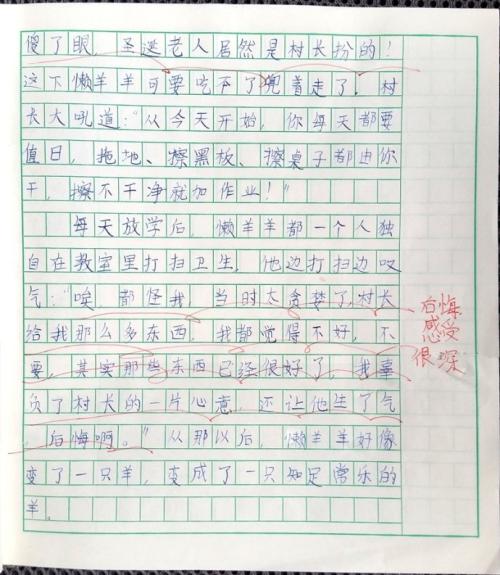 傻了眼，圣诞老人居然是村长扮的！
这下懒羊羊可要吃不了兜着走了，村
长大吼道：“从今天开始，你每天都要
值日，拖地、擦黑板、擦桌子都由你
干，擦不干净就加作业！”
每天放学后，懒羊羊都一个人独
自在教室里打扫卫生，他边打扫边叹
气：“唉，都怪我，当时太贪婪了，村长
给我那么多东西，我都觉得不好，不
要，其实那些东西已经很好了，我辜
负了村长的一片心意，还让他生了气
，后悔啊。”从那以后，懒羊羊好像
变了一只羊，变成了一只知足常乐的
羊。
后悔
感受
很深